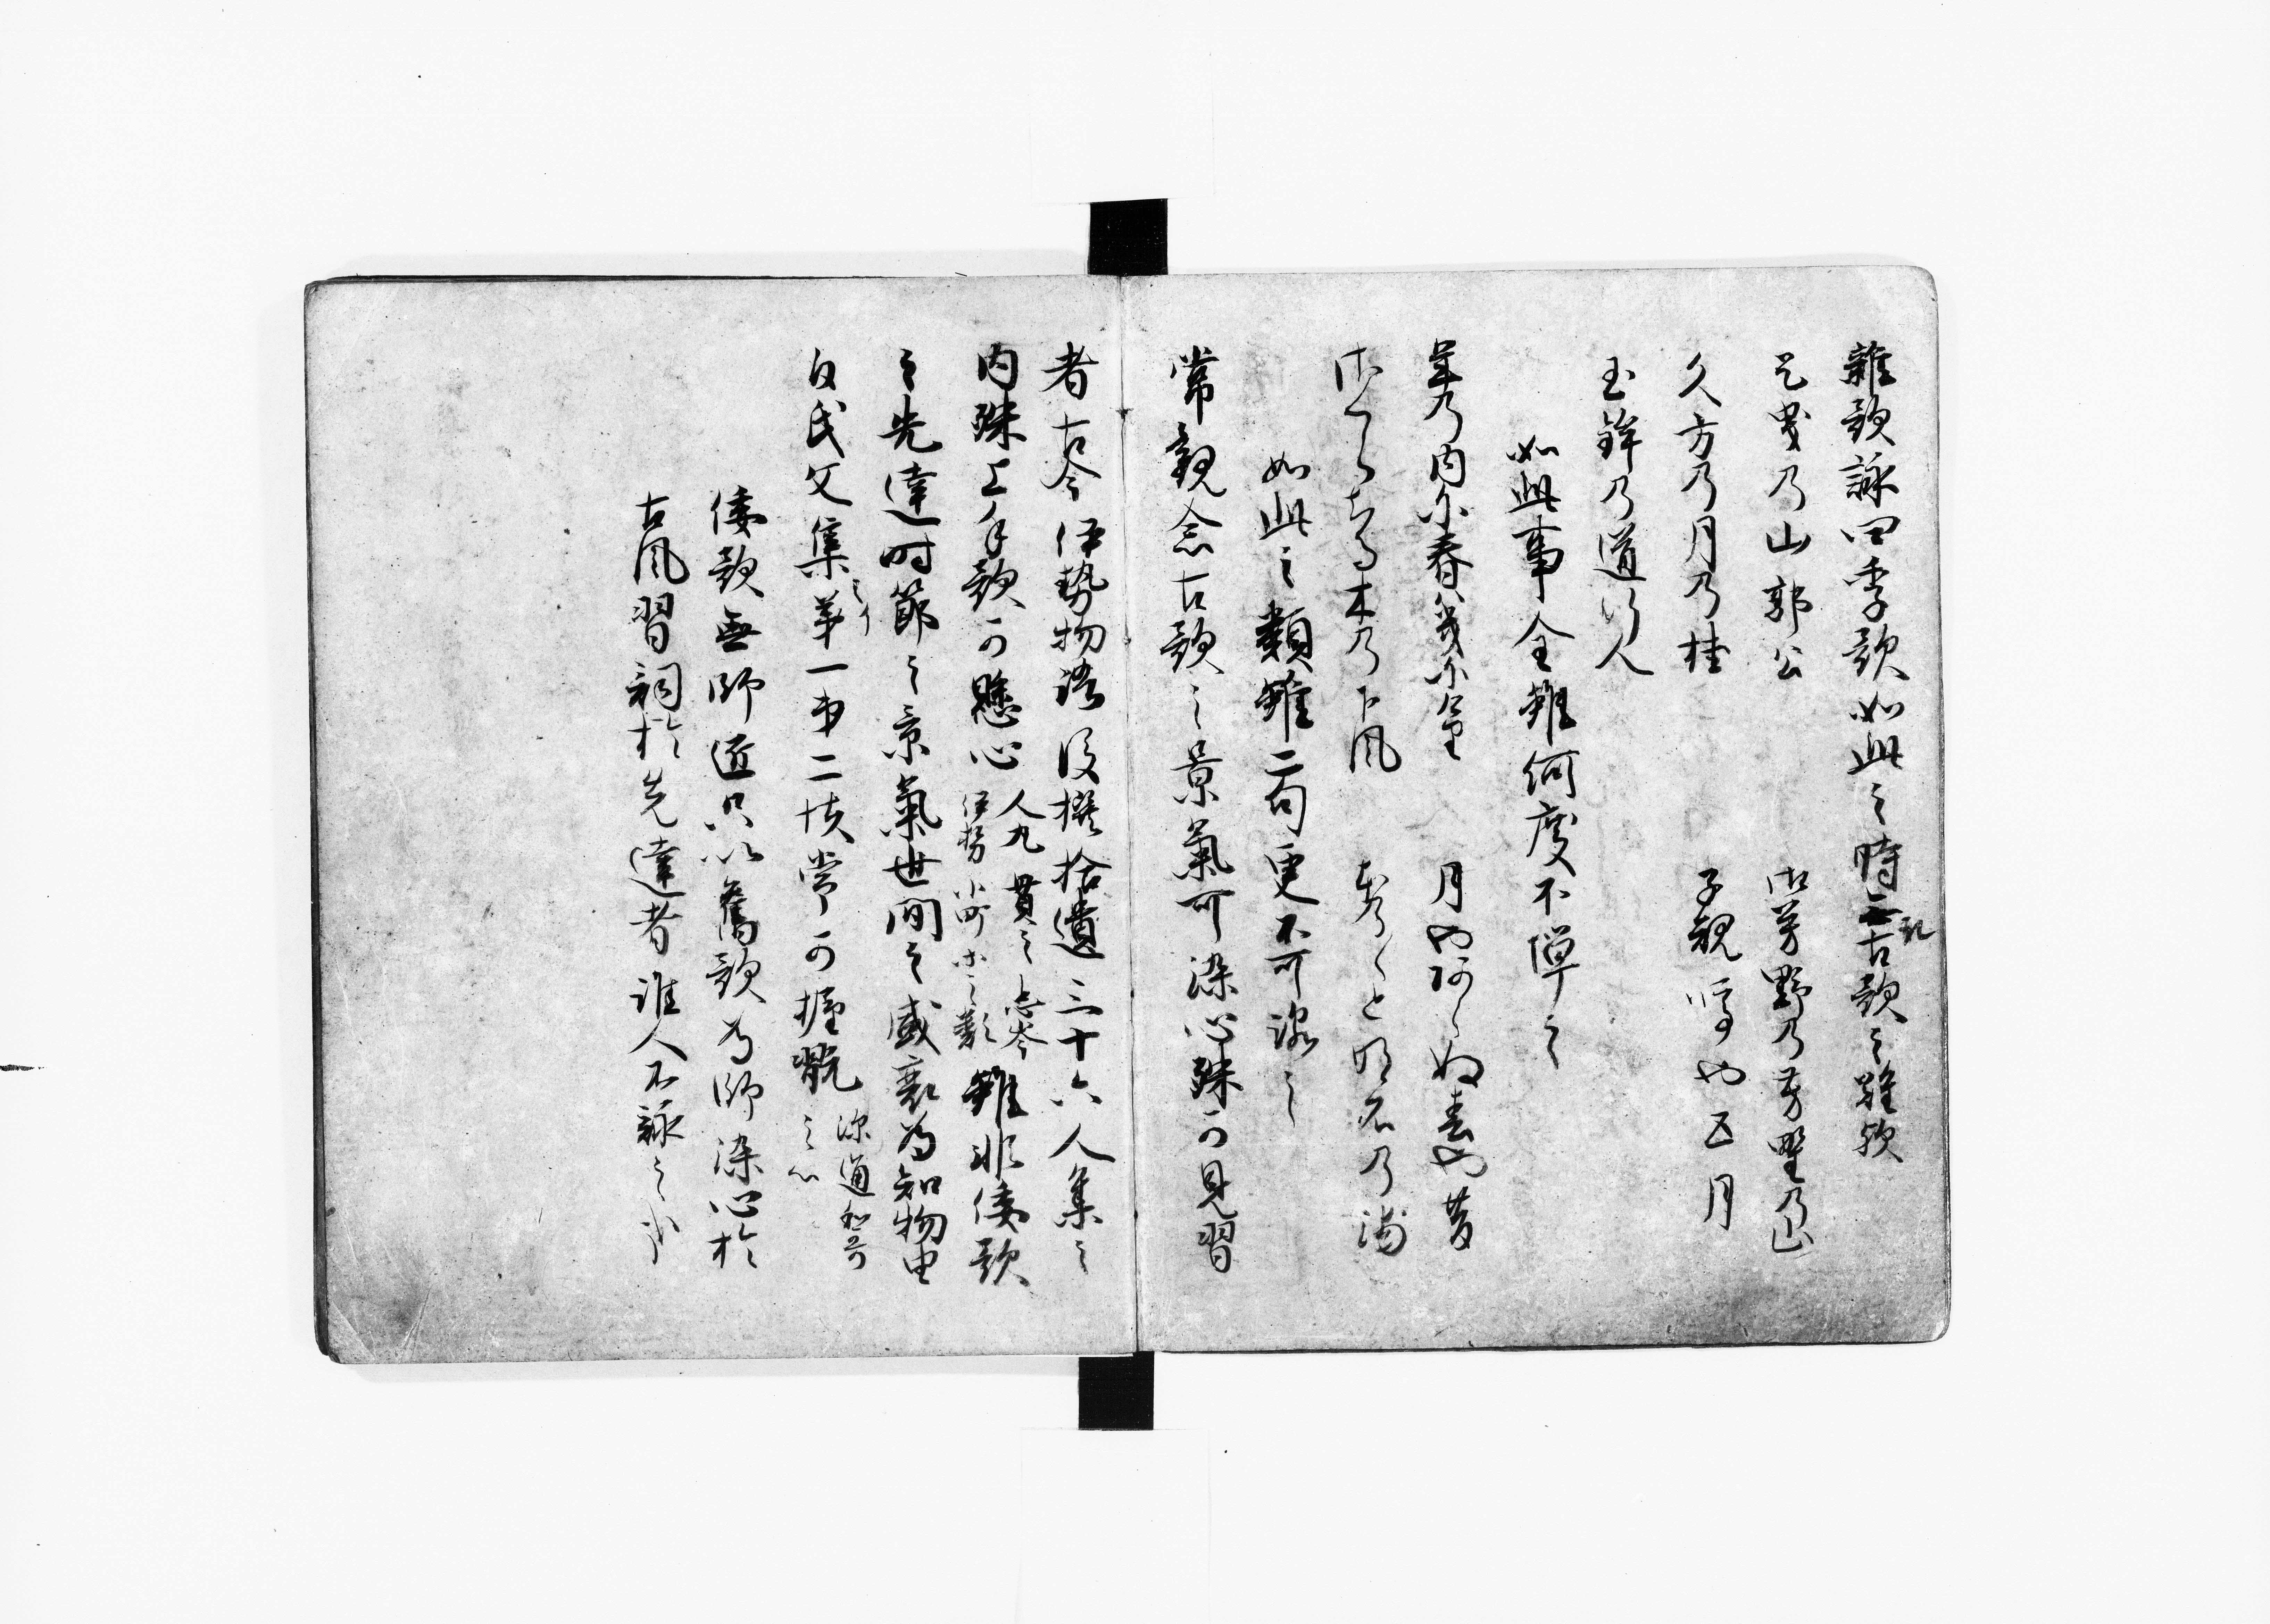 雑歌詠四季歌如此之時無取古歌之難歟
足曳乃山郭公　御芳野乃芳野乃山
久方乃月乃桂　子規鳴也五月
玉鉾乃道行人
如此事全雖何度不憚之
年乃内尓春幾尓介里　月也阿良ぬ春也昔
さくらちる木乃下風　ほの／＼と明石乃浦
如此之類雖二句更不可詠之
常観念古歌之景氣可染心殊可見習
者古今伊勢物語後撰拾遺三十六人集之
内殊上手歌可懸心
人丸貫之忠岑
伊勢小町等之類
雖非倭歌
之先達時節之景氣世間之盛衰為知物由
白氏文集
第一第二帙常可握翫
深通和哥
之心
倭歌無師匠只以舊歌為師染心於
古風習詞於先達者誰人不詠之哉